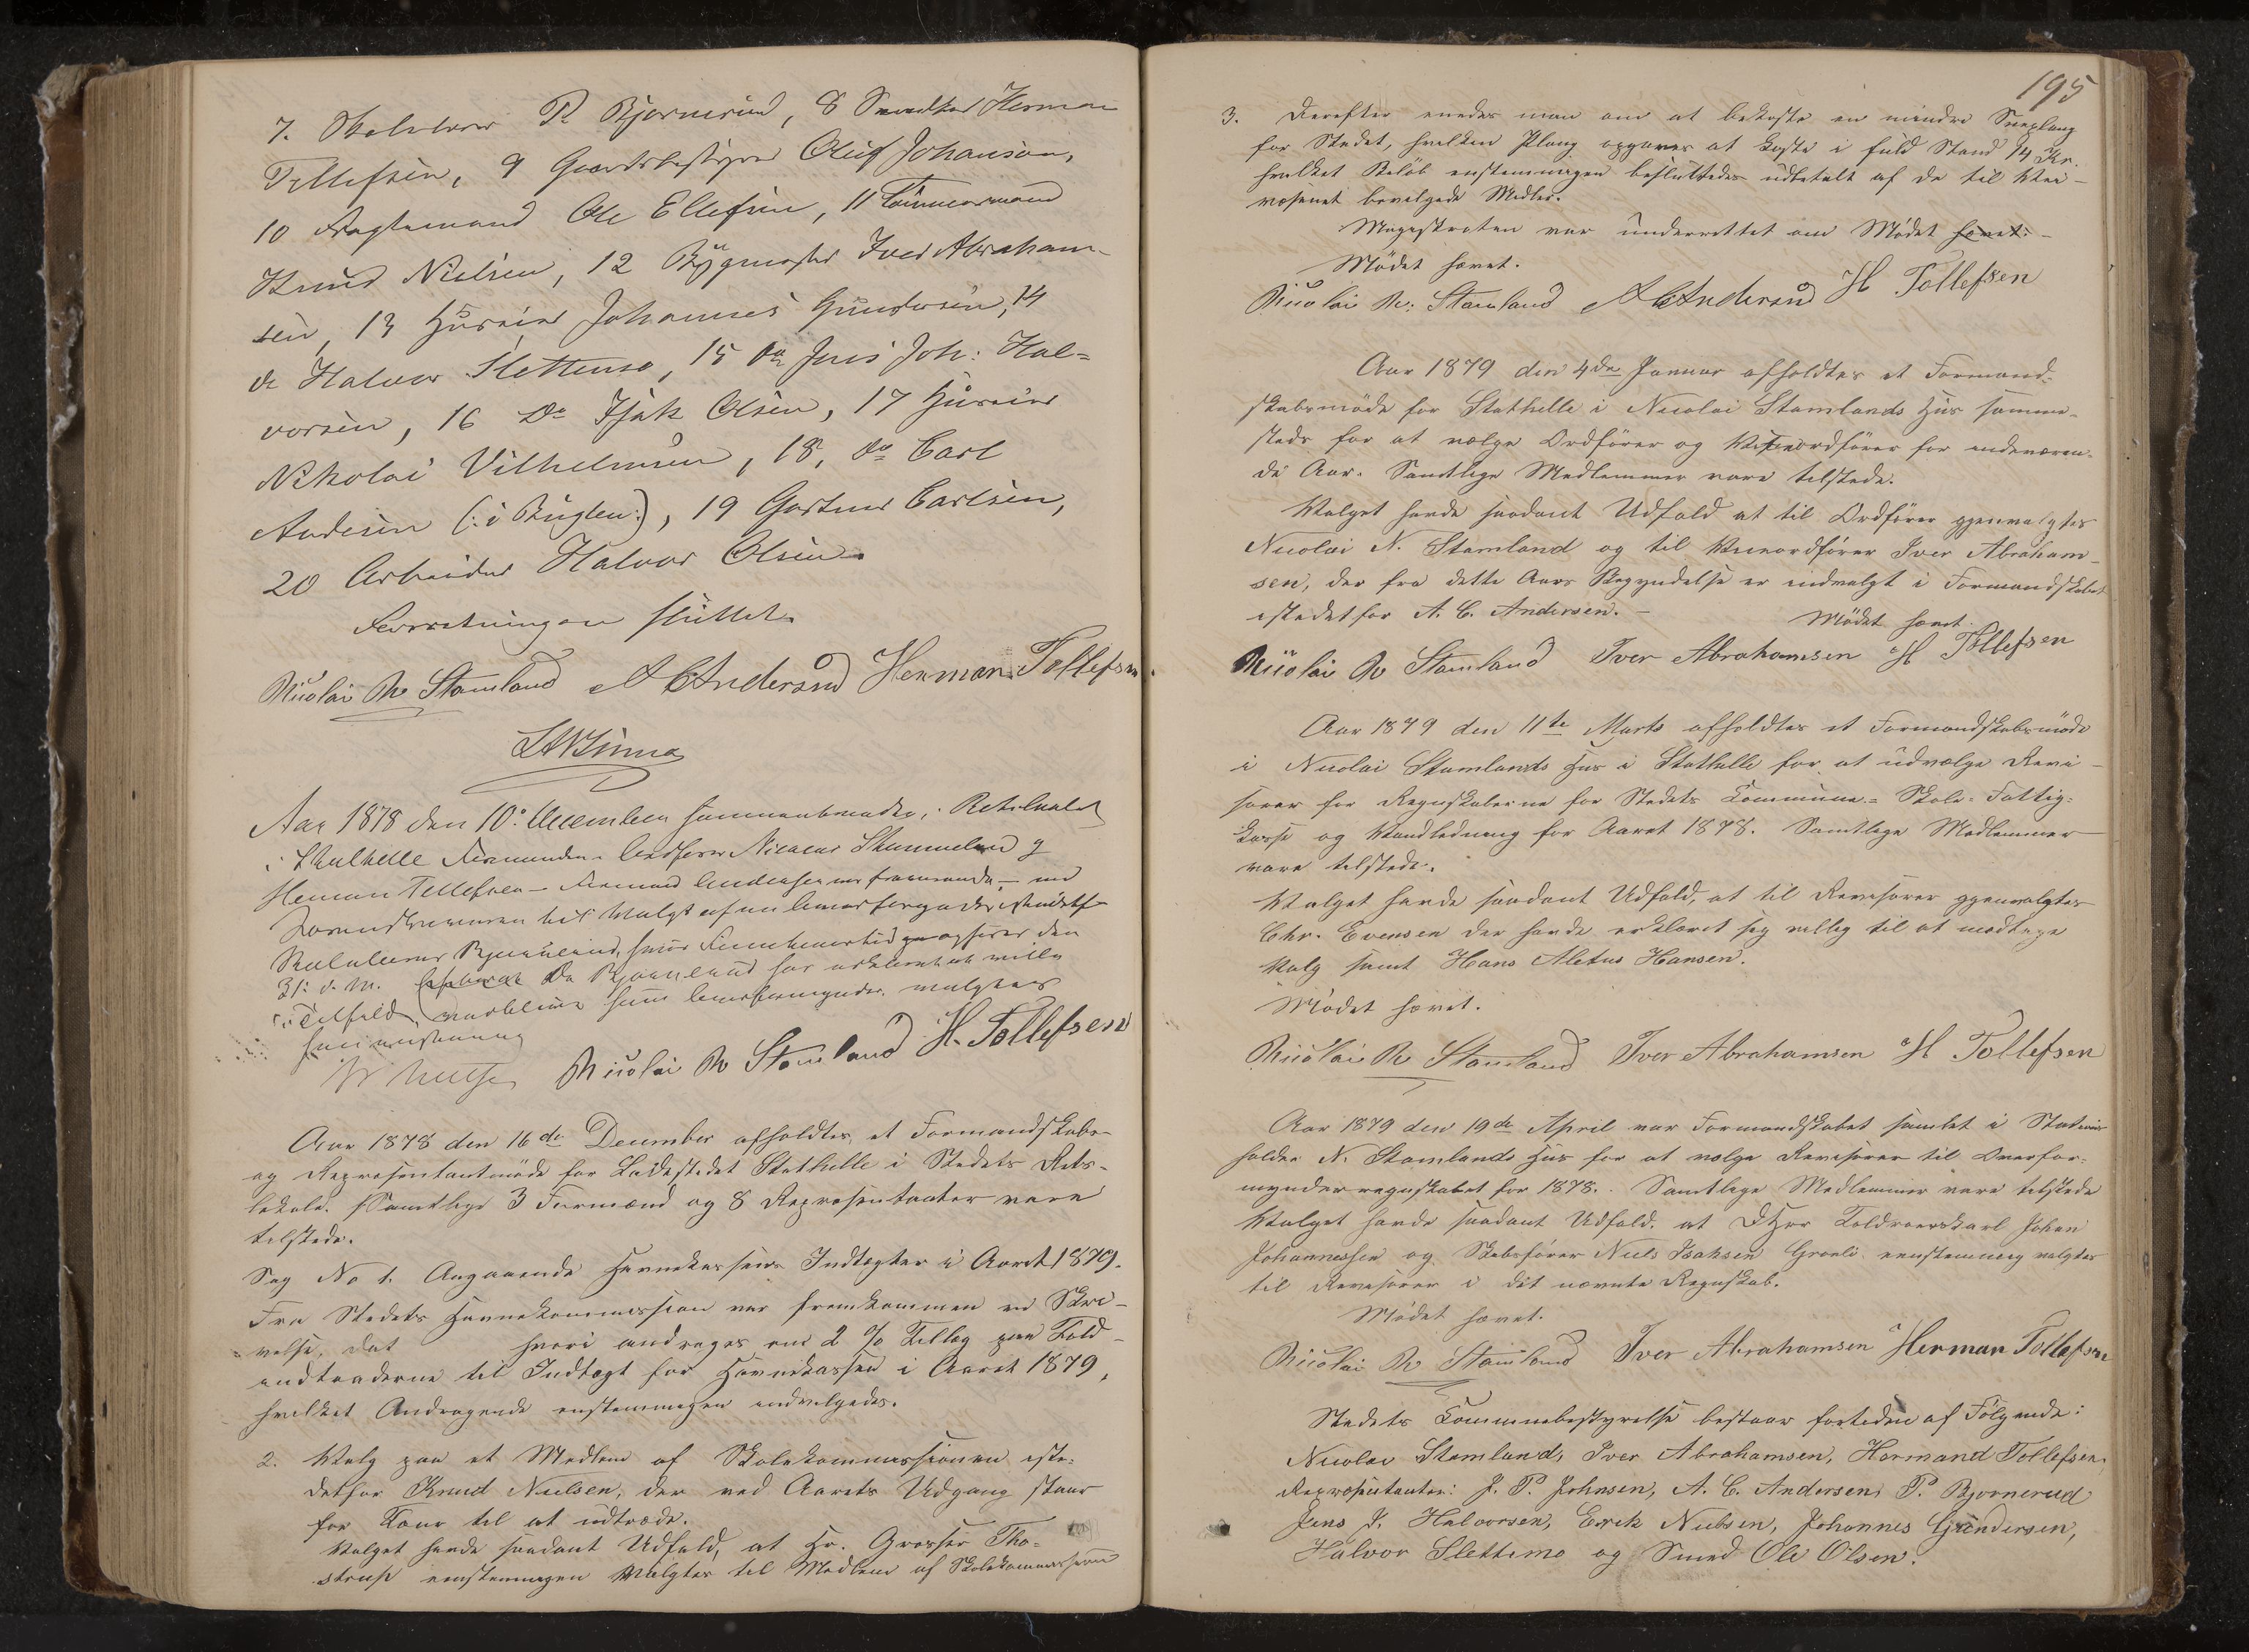 7. Skolelærer P. Bjørnerud, 8 Snedker Herman
Tollefsen, 9 Gaardsbestyrer Oluf Johanson,
10 Fragtemand Ole Ellefsen, 11 Tømmermand
Knud Nielsen, 12 Bygmester Iver Abraham-
sen, 13 Huseier Johannes Gundersen, 14
do Halvor Slettemo, 15 do Jens Joh: Hal-
vorsen, 16 Do Isak Olsen, 17 Huseier
Nikolai Vilhelmsen, 18, do Carl
Andersen (: i Buglen :), 19 Gartner Carlsen,
20 Arbeider Halvor Olsen.
Forretningen sluttet.
Nicolai N Stamland A C Andersen Herman Tollefsen
Aar 1878 den 10de December sammentraadte i Retslokalet
i Stathelle Formændene Ordfører Nicolai Stamland og
Herman Tollefsen – Formand Andersen var fraværende –
Skolelærer Bjørnerud, hvis Funktionstid ophører den
31. d. M. Da Bjørnerud har erklæret at ville
Nicolai N Stamland H. Tollefsen
Aar 1878 den 16de December afholdtes et Formandskabs-
og Repræsentantmøde for Ladestedet Stathelle i Stedets Rets-
lokale. Samtlige 3 Formænd og 8 Repræsentanter vare
tilstede.
Sag No 1. Angaaende Havnekassens Indtægter i Aaret 1879.
Fra Stedets Havnekommission var fremkommen en Skri-
velse, dat hvori andrages om 2 % Tillæg paa Told-
indtraderne til Indtægt for Havnekassen i Aaret 1879,
hvilket Andragende enstemmigen indvilgedes.
2. Valg paa et Medlem af Skolekommissionen iste-
detfor Knud Nielsen, der ved Aarets Udgang staar
for Tour til at udtræde.
Valget havde saadant Udfald, at Hr. Grosser Tho-
strup enstemmigen valgtes til Medlem af Skolekommissionen
195
3. Derefter enedes man om at bekoste en mindre Sneploug
for Stedet, hvilken Ploug opgaves at koste i fuld Stand 14 Kr.
hvilket Beløb enstemmigen besluttedes udbetalt af de til Vei-
væsenet bevilgede Midler.
Magistraten var underrettet om Mødet hævet. –
Mødet hævet.
Nicolai N. Stamland A C Andersen H Tollefsen
Aar 1879 den 4de Januar afholdtes et Formand-
skabsmøde for Stathelle i Nicolai Stamlands Hus samme-
steds for at vælge Ordfører og Viceordfører for indeværen-
de Aar. Samtlige Medlemmer vare tilstede.
Valget havde saadant Udfald at til Ordfører gjenvalgtes
Nicolai N. Stamland og til Viceordfører Iver Abraham-
sen, der fra dette Aars Begyndelse er indvalgt i Formandskabet
istedetfor A. C. Andersen. –
Mødet hævet.
Nicolai N Stamland Iver Abrahamsen H Tollefsen
Aar 1879 den 11te Marts afholdtes et Formandskabsmøde
i Nicolai Stamlands Hus i Stathelle for at udvælge Revi-
sorer for Regnskaberne for Stedets Commune- Skole- Fattig-
kasse og Vandledning for Aaret 1878. Samtlige Medlemmer
vare tilstede.
Valget havde saadant Udfald, at til Revisorer gjenvalgtes
Chr. Evensen der havde erklæret sig villig til at modtage
Valg samt Hans Aletus Hansen.
Mødet hævet.
Nicolai N Stamland Iver Abrahamsen H Tollefsen
Aar 1879 den 19de April var Formandskabet samlet i
holder N. Stamlands Hus for at vælge Revisorer til Overfor-
mynderregnskabet for 1878. Samtlige Medlemmer vare tilstede
Valget havde saadant Udfald, at DHrr Toldroerskarl Johan
Johannessen og Skibsfører Niels Isaksen Graali eenstemmig valgtes
til Revisorer i det nævnte Regnskab.
Mødet hævet.
Nicolai N Stamland Iver Abrahamsen Herman Tollefsen
Stedets Communebestyrelse bestaar fortiden af Følgende:
Nicolai Stamland, Iver Abrahamsen, Hermand Tollefsen.
Repræsentanter: J. P. Johnsen, A. C. Andersen, P. Bjørnerud
Jens J. Halvorsen, Erik Nielsen, Johannes Gundersen,
Halvor Slettemo og Smed Ole Olsen.